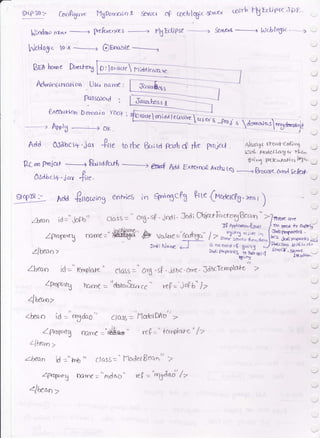 Step 10:- Configure MyDomain1 server of weblogic server with MyEclipse IDE.
Window menu → preferences → MyEclipse → Servers → Weblogic →
Weblogic 10.x → Enable →
BEA home Directory D:\oracle\Middleware
Administration User name : Javaboss
Password : Javaboss1
Execution Domain root :
→ Apply → OK.
Add Ojdbc14.jar file to the Build path of the project.
Always start coding
with model layer then
going presentation layer
RC on project → BuildPath → Add External Archives → Browse and Select
Ojdbc14.jar file.
Add following entries in SpringCfg file (ModelCfg.xml)
<bean id="jofb" class="org.sf.jndi.JndiObjectFactoryBean">
<property name="jndiName" value=" "/>
</bean>
Jndi Name
<bean id="template" class="org.sf.jdbc.core.JdbcTemplate">
<property name="dataSource" ref="jofb"/>
</bean>
<bean id="mydao" class="ModelDAO">
<property name= ref="template"/>
</bean>
<bean id="mb" class="ModelBean">
<property name="mdao" ref="mydao"/>
</bean>